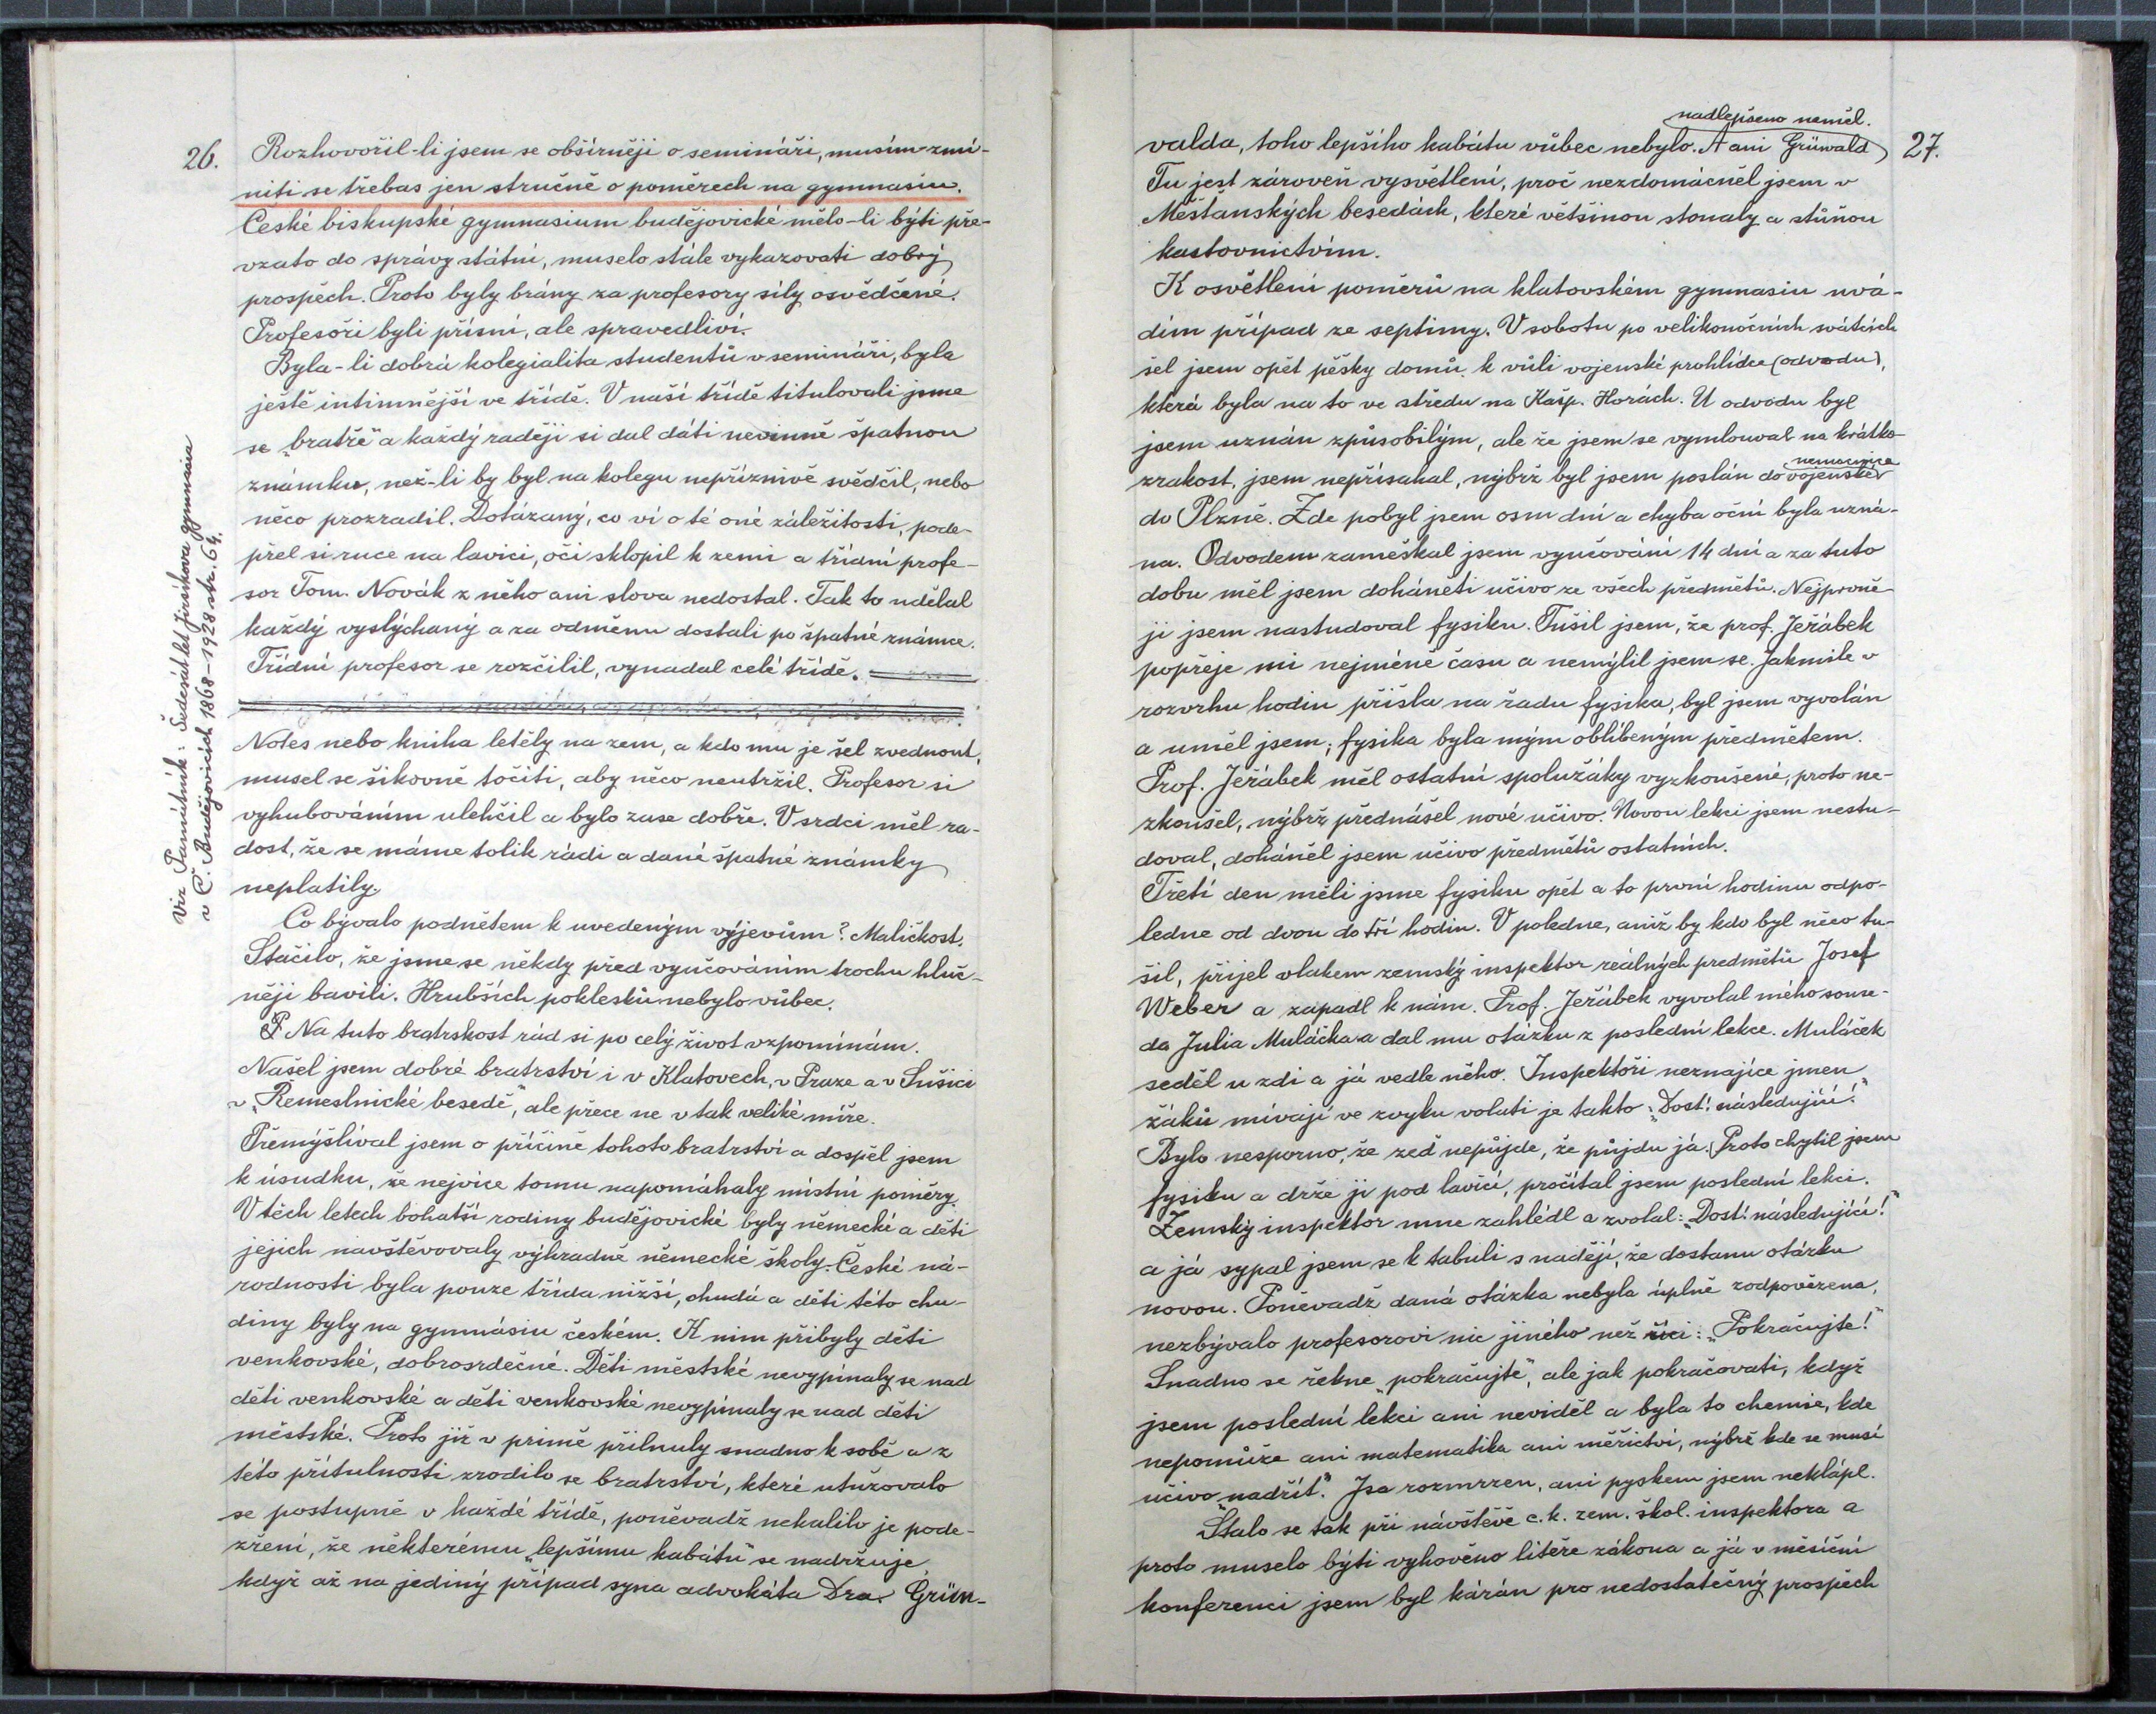 26.
Rozhovořil-li jsem se obšírněji o semináři, musím zmí-
niti se třebas jen stručně o poměrech na gymnasiu.
České biskupské gymnasium budějovické mělo-li býti pře-
vzato do správy státní, muselo stále vykazovati dobrý
prospěch. Proto byly brány za profesory síly osvědčené.
Profesoři byli přísní, ale spravedliví.
Byla-li dobrá kolegialita studentů v semináři, byla
ještě intimnější ve třídě. V naší třídě titulovali jsme
se „bratře" a každý raději si dal dáti nevinně špatnou
známku, než-li by byl na kolegu nepříznivě svědčil, nebo
něco prozradil. Dotázaný, co ví o té oné záležitosti, pode-
přel si ruce na lavici, oči sklopil k zemi a třídní profe-
sor Tom. Novák z něho ani slova nedostal. Tak to udělal
každý vyslýchaný a za odměnu dostali po špatné známce.
Třídní profesor se rozčilil, vynadal celé třídě.
Notes nebo kniha letěly na zem, a kdo mu je šel zvednout,
musel se šikovně točiti, aby něco neutržil. Profesor si
vyhubováním ulehčil a bylo zase dobře. V srdci měl ra-
dost, že se máme tolik rádi a dané špatné známky
neplatily.
Co bývalo podnětem k uvedeným výjevům? Maličkost.
Stačilo, že jsme se někdy před vyučováním trochu hluč-
něji bavili. Hrubších poklesků nebylo vůbec.
Na tuto bratrskost rád si po celý život vzpomínám.
Našel jsem dobré bratrství i v Klatovech, v Praze a v Sušici
v „Řemeslnické besedě", ale přece ne v tak veliké míře.
Přemýšlíval jsem o příčině tohoto bratrství a dospěl jsem
k úsudku, že nejvíce tomu napomáhaly místní poměry.
V těch letech bohatší rodiny budějovické byly německé a děti
jejich navštěvovaly výhradně německé školy. České ná-
rodnosti byla pouze třída nižší, chudá a děti této chu-
diny byly na gymnásiu českém. K nim přibyly děti
venkovské, dobrosrdečné. Děti městské nevypínaly se nad
děti venkovské a děti venkovské nevypínaly se nad děti
městské. Proto již v primě přilnuly snadno k sobě a z
této přítulnosti zrodilo se bratrství, které utužovalo
se postupně v každé třídě, poněvadž nekalilo je pode-
zření, že některému „lepšímu kabátu" se nadržuje,
když až na jediný případ syna advokáta Dra. Grün-
Viz Památník: Šedesát let Jirsíkova gymnasia
v Č. Budějovicích 1868-1928 str. 64.
27.
nadlepšeno neměl.
valda, toho lepšího kabátu vůbec nebylo. A ani Grünvald
Tu jest zároveň vysvětlení, proč nezdomácněl jsem v
Měšťanských besedách, které většinou stonaly a stůňou
kastovnictvím.
K osvětlení poměrů na klatovském gymnasiu uvá-
dím případ ze septimy. V sobotu po velikonočních svátcích
šel jsem opět pěšky domů, k vůli vojenské prohlídce (odvodu),
která byla na to ve středu na Kašp. Horách. U odvodu byl
jsem uznán způsobilým, ale že jsem se vymlouval na krátko-
nemocnice
zrakost, jsem nepřísahal, nýbrž byl jsem poslán do vojenské
do Plzně. Zde pobyl jsem osm dní a chyba oční byla uzná-
na. Odvodem zameškal jsem vyučování 14 dní a za tuto
dobu měl jsem doháněti učivo ze všech předmětů. Nejprvně-
ji jsem nastudoval fysiku. Tušil jsem, že prof. Jeřábek
popřeje mi nejméně času a nemýlil jsem se. Jakmile v
rozvrhu hodin přišla na řadu fysika, byl jsem vyvolán
a uměl jsem; fysika byla mým oblíbeným předmětem.
Prof. Jeřábek měl ostatní spolužáky vyzkoušené, proto ne-
zkoušel, nýbrž přednášel nové učivo. Novou lekci jsem nestu-
doval, doháněl jsem učivo předmětů ostatních.
Třetí den měli jsme fysiku opět a to první hodinu odpo-
ledne od dvou do tří hodin. V poledne, aniž by kdo byl něco tu-
šil, přijel vlakem zemský inspektor reálných předmětů Josef
Weber a zapadl k nám. Prof. Jeřábek vyvolal mého souse-
da Julia Muláčka a dal mu otázku z poslední lekce. Muláček
seděl u zdi a já vedle něho. Inspektoři neznajíce jmen
žáků mívají ve zvyku volati je takto: „Dost! následující!"
Bylo nesporno, že zeď nepůjde, že půjdu já. Proto chytil jsem
fysiku a drže ji pod lavicí, pročítal jsem poslední lekci.
Zemský inspektor mne zahlédl a zvolal: „Dost! následující!"
a já sypal jsem se k tabuli s nadějí, že dostanu otázku
novou. Poněvadž daná otázka nebyla úplně zodpověděna,
nezbývalo profesorovi nic jiného než říci: „Pokračujte!"
Snadno se řekne „pokračujte", ale jak pokračovati, když
jsem poslední lekci ani neviděl a byla to chemie, kde
nepomůže ani matematika ani měřictví, nýbrž kde se musí
učivo „nadřít". Jsa rozmrzen, ani pyskem jsem neklápl.
Stalo se tak při návštěvě c. k. zem. škol. inspektora a
proto muselo býti vyhověno liteře zákona a já v měsíční
konferenci jsem byl kárán pro nedostatečný prospěch